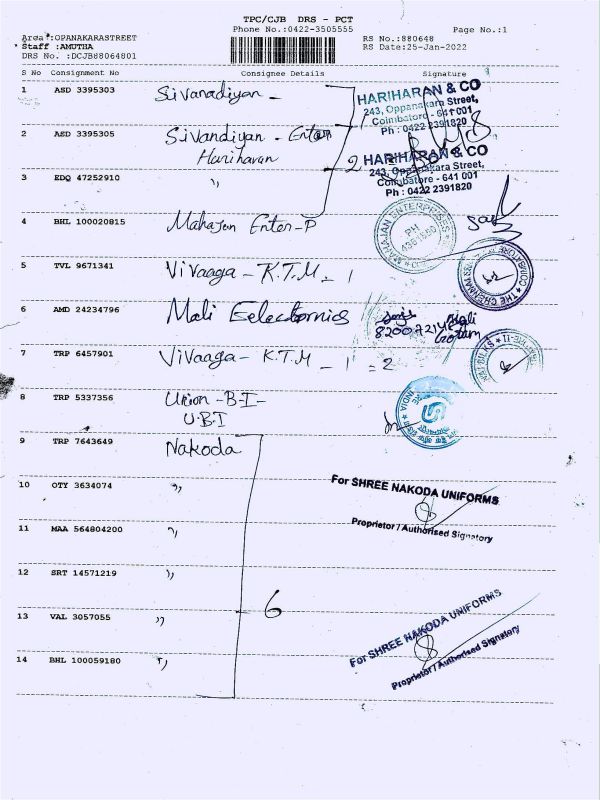 TPC/CJB DRS - PCT
Phone No.:0422-3505555
Page No.:1
Area :OPANAKARASTREET
RS No.:880648
Staff :AMUTHA
RS Date:25-Jan-2022
DRS No. :DCJB88064801
S No Consignment No Consignee Details Signature
1 ASD 3395303 Sivanadiyan -
HARIHARAN & CO
243, Oppanakara Street,
Coimbatore - 641 001
Ph : 0422 2391820
2 ASD 3395305 Sivandiyan - Enter
Hariharan
2
HARIHARAN & CO
243, Oppanakara Street,
Coimbatore - 641 001
Ph : 0422 2391820
3 EDQ 47252910 "
4 BHL 100020815 Mahajan Enter-P
MAHAJAN ENTERPRISES
PH
5 TVL 9671341 Vivaaga - K.T.M - 1
THE CHENNAI
6 AMD 24234796 Mali Eelectomics
7 TRP 6457901 Vivaaga - K.T.M - 1 = 2
SILKS
8 TRP 5337356 Union - B.I -
U.B.I
INDIA
9 TRP 7643649 Nakoda
10 OTY 3634074 "
For SHREE NAKODA UNIFORMS
Proprietor / Authorised Signatory
11 MAA 564804200 "
12 SRT 14571219 "
6
13 VAL 3057055 "
For SHREE NAKODA UNIFORMS
Proprietor / Authorised Signatory
14 BHL 100059180 "